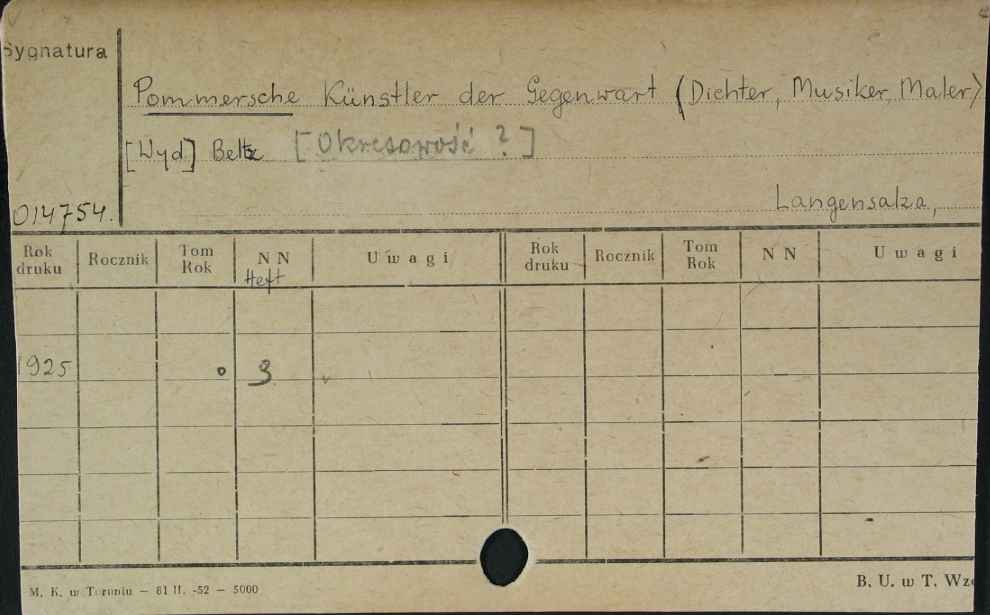 Sygnatura
Pommersche Künstler der Gegenwart (Dichter, Musiker, Maler)
[Wyd] Beltz [Okresowość ?]
014754.
Langensalza,
Rok druku Rocznik Tom Rok NN Uwagi Rok druku Rocznik Tom Rok NN Uwagi
Heft
1925 3
M. K. w Toruniu — 81 II. -52 — 5000
B. U. w T.